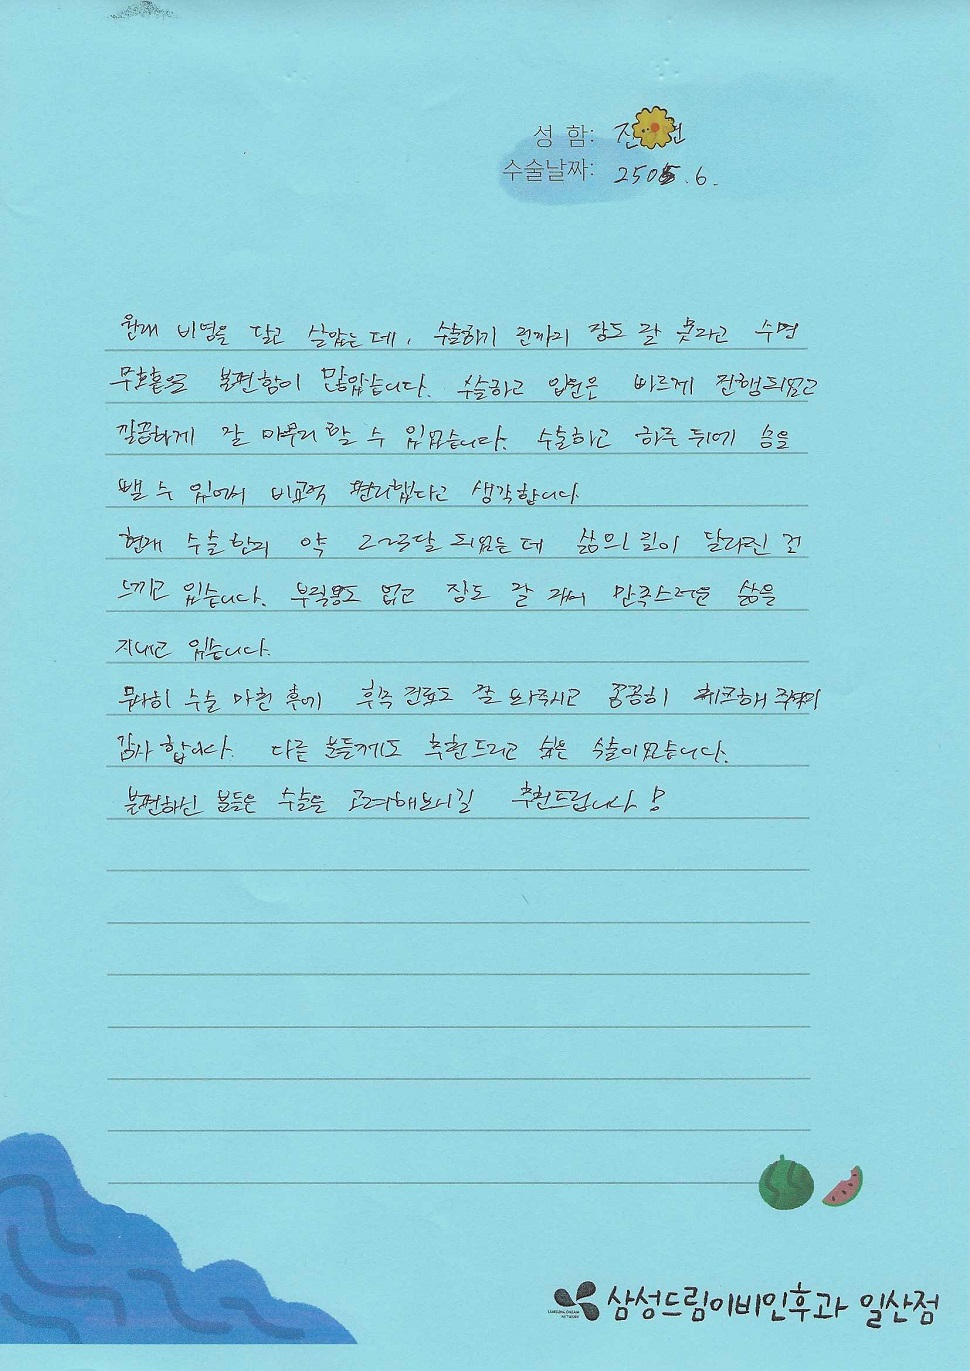 성 함: 진
수술날짜: 2505.6.
원래 비염을 달고 살았는데, 수술하기 전까지 잠도 잘 못자고 수면
무호흡으로 불편함이 많았습니다. 수술하고 입원은 빠르게 진행되었고
깔끔하게 잘 마무리 할 수 있었습니다. 수술하고 하루 뒤에 솜을
뺄 수 있어서 비교적 편리했다고 생각합니다
현재 수술한지 약 2~3달 되었는데 삶의 질이 달라진 걸
느끼고 있습니다. 부작용도 없고 잠도 잘 자며 만족스러운 삶을
지내고 있습니다.
무사히 수술 마친 후에 후속 진료도 잘 봐주시고 꼼꼼히 체크해 주셔서
감사 합니다. 다른 분들께도 추천드리고 싶은 수술이었습니다.
불편하신 분들은 수술을 고려해보시길 추천드립니다!
삼성드림이비인후과 일산점